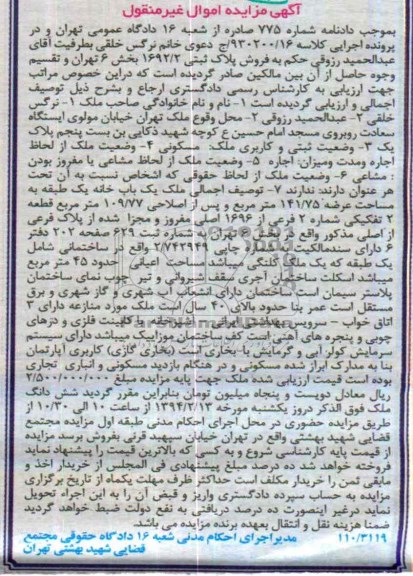 آگهی مزایده اموال غیرمنقول
بموجب دادنامه شماره ۷۷۵ صادره از شعبه ۱۶ دادگاه عمومی تهران و در
پرونده اجرایی کلاسه ۹۳۰۲۰۰/۱۶/ج دعوی خانم نرگس خلقی بطرفیت آقای
عبدالحمید رزوقی حکم به فروش پلاک ثبتی ۱۶۹۲/۲ بخش ۶ تهران و تقسیم
وجوه حاصل از آن بین مالکین صادر گردیده است که دراین خصوص مراتب
جهت ارزیابی به کارشناس رسمی دادگستری ارجاع و بشرح ذیل توصیف
اجمالی و ارزیابی گردیده است ۱- نام و نام خانوادگی صاحب ملک ۱- نرگس
خلقی ۲- عبدالحمید رزوقی ۲- محل وقوع ملک تهران خیابان مولوی ایستگاه
سعادت روبروی مسجد امام حسین ع کوچه شهید ذکایی بن بست پنجم پلاک
یک ۳- وضعیت ثبتی و کاربری ملک: مسکونی ۴- وضعیت ملک از لحاظ
اجاره ومدت ومیزان: اجاره ۵- وضعیت ملک از لحاظ مشاعی یا مفروز بودن
: مشاعی ۶- وضعیت ملک از لحاظ حقوقی که اشخاص نسبت به آن تحت
هر عنوان دارند: ندارند ۷- توصیف اجمالی ملک یک باب خانه یک طبقه به
مساحت عرصه ۱۴۱/۷۵ متر مربع و پس از اصلاحی ۱۰۹/۷۷ متر مربع قطعه
۲ تفکیکی شماره ۲ فرعی از ۱۶۹۶ اصلی مفروز و مجزا شده از پلاک فرعی
از اصلی مذکور واقع در بخش ۶ تهران به شماره ثبت ۶۲۹ صفحه ۲۰۲ دفتر
۶ دارای سندمالکیت شماره چاپی ۲/۷۴۲۹۴۹ واقع در ساختمانی شامل
یک طبقه که یک ملک کلنگی میباشد مساحت اعیانی حدود ۴۵ متر مربع
میباشد اسکلت ساختمان آجری سقف شیروانی و تیر چوب نمای ساختمان
پلاستر سیمان است ساختمان دارای انشعاب آب شهری و گاز شهری و برق
مستقل است عمر بنا حدود بالای ۴۰ سال است ملک مورد منازعه دارای ۲
اتاق خواب - سرویس بهداشتی ایرانی - آشپزخانه با کابینت فلزی و درهای
چوبی و پنجره های آهنی است کف ساختمان موزاییک میباشد دارای سیستم
سرمایش کولر آبی و گرمایش با بخاری است (بخاری گازی) کاربری آپارتمان
بنا به مدارک ابراز شده مسکونی و در هنگام بازدید مسکونی و انباری تجاری
بوده است قیمت ارزیابی شده ملک جهت پایه مزایده مبلغ ۲/۵۰۰/۰۰۰/۰۰۰
ریال معادل دویست و پنجاه میلیون تومان بنابراین مقرر گردید شش دانگ
ملک فوق الذکر دروز یکشنبه مورخه ۱۳۹۴/۲/۱۳ از ساعت ۱۰ الی ۱۰/۳۰ از
طریق مزایده حضوری در محل اجرای احکام مدنی طبقه اول مزایده مجتمع
قضایی شهید بهشتی واقع در تهران خیابان سپهبد قرنی بفروش برسد مزایده
از قیمت پایه کارشناسی شروع و به کسی که بالاترین قیمت را پیشنهاد نماید
فروخته خواهد شد ده درصد مبلغ پیشنهادی فی المجلس از خریدار اخذ و
مابقی ثمن را خریدار مکلف است حداکثر ظرف مهلت یکماه از تاریخ برگزاری
مزایده به حساب سپرده دادگستری واریز و قبض آن را به این اجراء تحویل
نماید درغیر اینصورت ده درصد دریافتی به نفع دولت ضبط خواهد گردید
ضمنا هزینه نقل و انتقال بعهده برنده مزایده می باشد.
۱۱۰/۳۱۱۹ مدیراجرای احکام مدنی شعبه ۱۶ دادگاه حقوقی مجتمع
قضایی شهید بهشتی تهران